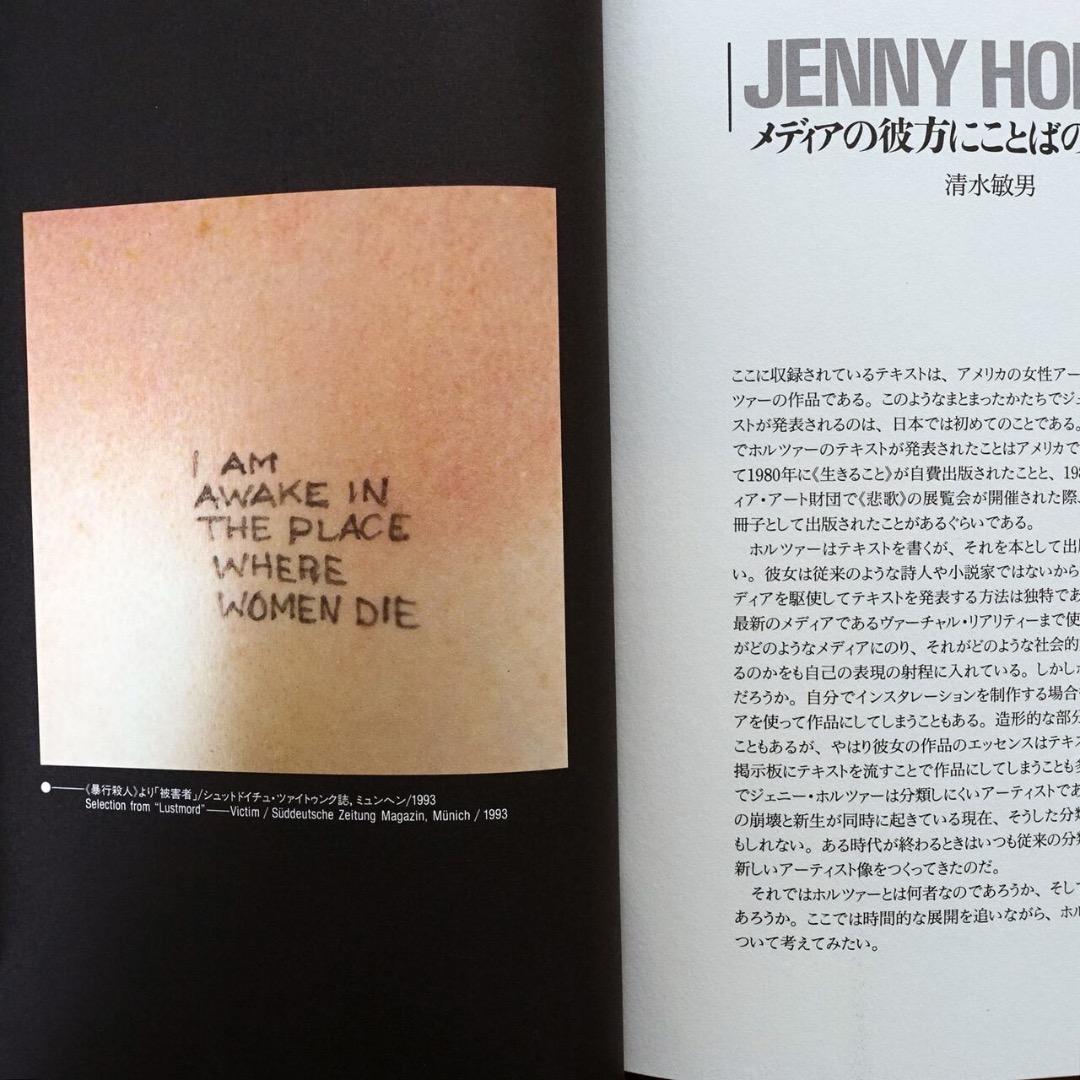 I AM
AWAKE IN
THE PLACE
WHERE
WOMEN DIE
《暴行殺人》より「被害者」/シュットドイチュ・ツァイトゥンク誌,ミュンヘン/1993
Selection from “Lustmord”——Victim / Süddeutsche Zeitung Magazin, Münich / 1993
JENNY
メディアの彼方にことばの
清水敏男
ここに収録されているテキストは、アメリカの女性アー
ツァーの作品である。このようなまとまったかたちでジェ
ストが発表されるのは、日本では初めてのことである。
でホルツァーのテキストが発表されたことはアメリカで
て1980年に《生きること》が自費出版されたことと、
ィア・アート財団で《悲歌》の展覧会が開催された際、
冊子として出版されたことがあるぐらいである。
ホルツァーはテキストを書くが、それを本として出
い。彼女は従来のような詩人や小説家ではないから
ディアを駆使してテキストを発表する方法は独特であ
最新のメディアであるヴァーチャル・リアリティーまで使
がどのようなメディアにのり、それがどのような社会的
るのかをも自己の表現の射程に入れている。しかし
だろうか。自分でインスタレーションを制作する場合
アを使って作品にしてしまうこともある。造形的な部分
こともあるが、やはり彼女の作品のエッセンスはテキス
掲示板にテキストを流すことで作品にしてしまうことも
でジェニー・ホルツァーは分類しにくいアーティストであ
の崩壊と新生が同時に起きている現在、そうした分類
もしれない。ある時代が終わるときはいつも従来の分類
新しいアーティスト像をつくってきたのだ。
それではホルツァーとは何者なのであろうか、そして
あろうか。ここでは時間的な展開を追いながら、ホル
ついて考えてみたい。